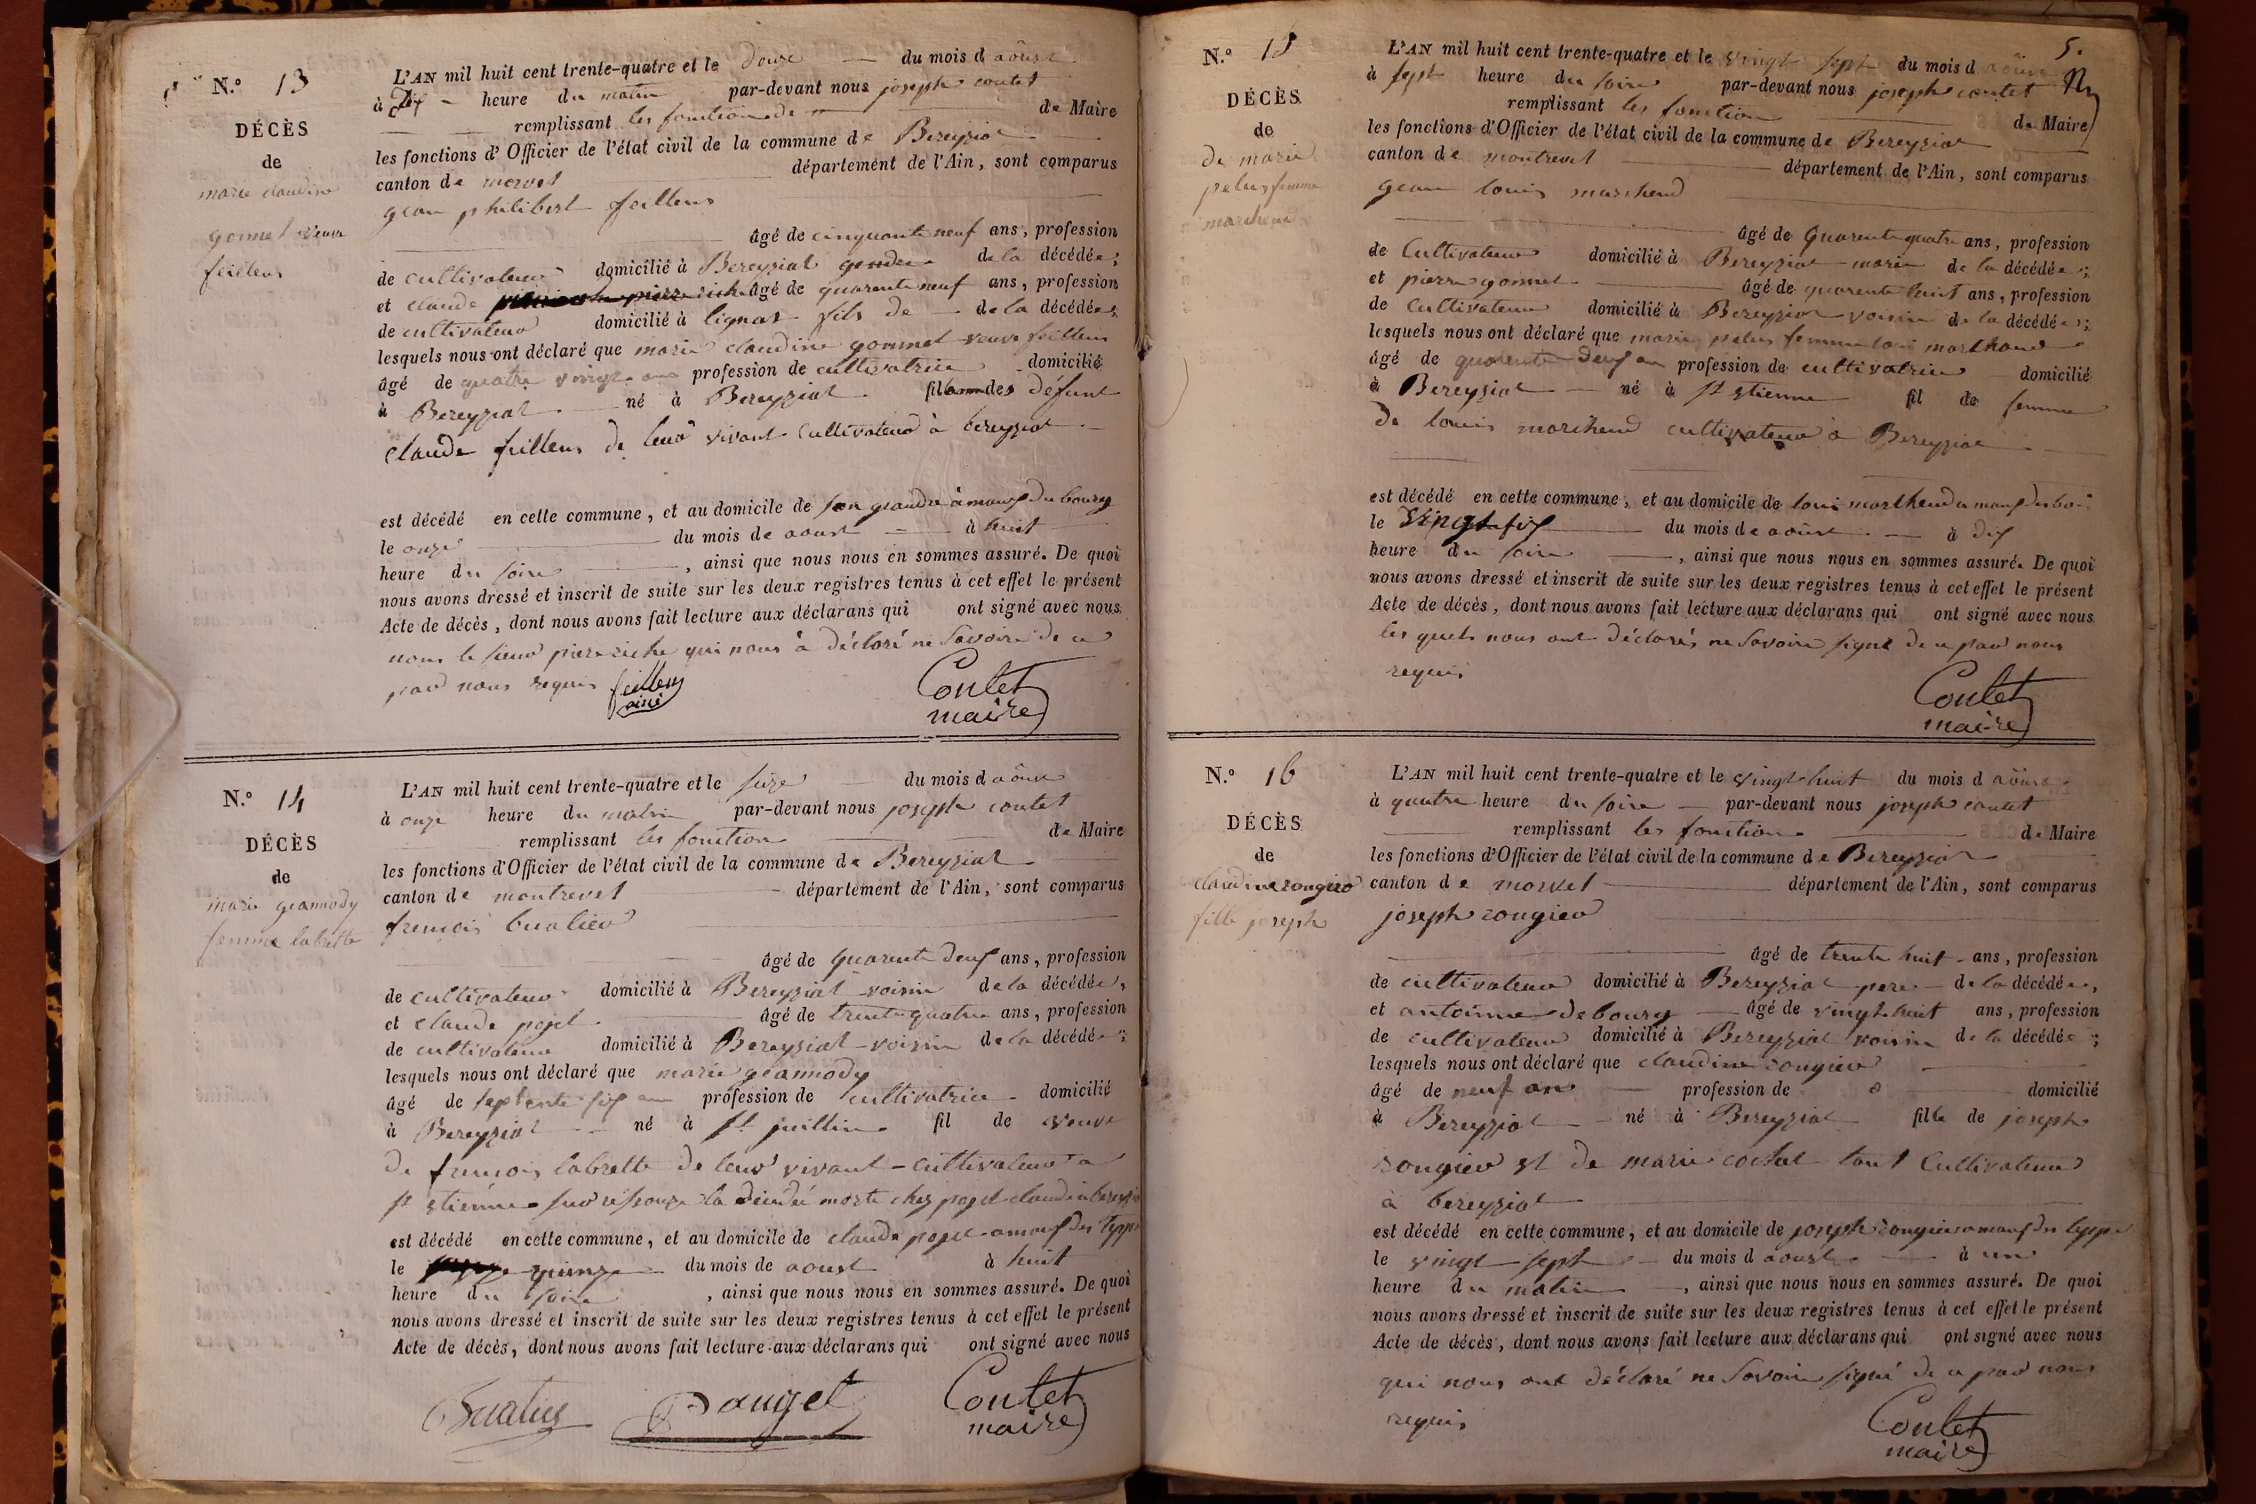 N.º 13
DÉCÈS
de
marie claudine
gonnet veuve
feillens
L'AN mil huit cent trente-quatre et le douze du mois d aôust
à Dix heure du matin par-devant nous joseph coutet
remplissant les fonction de de Maire
les fonctions d'Officier de l'état civil de la commune de Bereyziat
canton de département de l'Ain, sont comparus
gean philibert feillens
âgé de cinquante neuf ans, profession
de cultivateur domicilié à Bereyziat gendre de la décédée;
et claude âgé de quarente neuf ans, profession
de cultivateur domicilié à lignat fils de de la décédée;
lesquels nous ont déclaré que marie claudine gonnet veuve feillens
âgé de quatre vingt ans profession de cultivatrice domicilié
à Bereyziat né à Bereyziat fil des défunt
claude feillens de leur vivant cultivateur à bereyziat
est décédé en cette commune, et au domicile de son gendre à du bourg
le onze du mois de aoust à huit
heure du soire, ainsi que nous nous en sommes assuré. De quoi
nous avons dressé et inscrit de suite sur les deux registres tenus à cet effet le présent
Acte de décès, dont nous avons fait lecture aux déclarans qui ont signé avec nous
nous le sieur piere riche qui nous à déclaré ne savoire de ce
par nous requis feillens
ainé
Coutet
maire
N.º 14
DÉCÈS
de
marie geannody
femme labrette
L'AN mil huit cent trente-quatre et le seize du mois d aôust
à onze heure du matin par-devant nous joseph coutet
remplissant les fonction de Maire
les fonctions d'Officier de l'état civil de la commune de Bereyziat
canton de montrevel département de l'Ain, sont comparus
frencois buatier
âgé de quarente deux ans, profession
de cultivateur domicilié à Bereyziat voisin de la décédée,
et claude poget âgé de trente quatre ans, profession
de cultivateur domicilié à Bereyziat voisin de la décédée;
lesquels nous ont déclaré que marie geannody
âgé de septente six ans profession de cultivatrice domicilié
à Bereyziat né à st juillin fil de veuve
de frencois labrette de leur vivant cultivateur a
st etienne sur ressouze la décédé morte chez poget claude à bereyziat
est décédé en cette commune, et au domicile de claude poget des
le quinze du mois de aoust à huit
heure du soire, ainsi que nous nous en sommes assuré. De quoi
nous avons dressé et inscrit de suite sur les deux registres tenus à cet effet le présent
Acte de décès, dont nous avons fait lecture aux déclarans qui ont signé avec nous
Buatier Pauget Coutet
maire
5.
N.º 15
DÉCÈS
de
de marie
pelus femme
marchend
L'AN mil huit cent trente-quatre et le vingt sept du mois d aôust
à sept heure du soire par-devant nous joseph coutet
remplissant les fonction de Maire
les fonctions d'Officier de l'état civil de la commune de Bereyziat
canton de montrevel département de l'Ain, sont comparus
gean louis marchend
âgé de quarente quatre ans, profession
de cultivateur domicilié à Bereyziat marie de la décédée;
et pierre gonnet âgé de quarente huit ans, profession
de cultivateur domicilié à Bereyziat voisin de la décédée;
lesquels nous ont déclaré que marie pelus femme loui marthend
âgé de quarente deux an profession de cultivatrice domicilié
à Bereyziat né à st etienne fil de femme
de louis marchend cultivateur a Bereyziat
est décédé en cette commune, et au domicile de loui marthend
le vingt six du mois de aôust à dix
heure du soire, ainsi que nous nous en sommes assuré. De quoi
nous avons dressé et inscrit de suite sur les deux registres tenus à cet effet le présent
Acte de décès, dont nous avons fait lecture aux déclarans qui ont signé avec nous
les quels nous ont déclarés ne savoire signé de ce par nous
requis
Coutet
maire
N.º 16
DÉCÈS
de
claudine rongier
fille joseph
L'AN mil huit cent trente-quatre et le vingt huit du mois d aôust
à quatre heure du soire par-devant nous joseph coutet
remplissant les fonction de Maire
les fonctions d'Officier de l'état civil de la commune de Bereyziat
canton de département de l'Ain, sont comparus
joseph rongier
âgé de trente huit ans, profession
de cultivateur domicilié à Bereyziat pere de la décédée,
et antoinne debourg âgé de vingt huit ans, profession
de cultivateur domicilié à Bereyziat voisin de la décédée;
lesquels nous ont déclaré que claudine rongier
âgé de neuf ans profession de domicilié
à Bereyziat né à Bereyziat fille de joseph
rongier et de marie tout cultivateur
à bereyziat
est décédé en cette commune, et au domicile de joseph rongier des
le vingt sept du mois d aoust à un
heure du matin, ainsi que nous nous en sommes assuré. De quoi
nous avons dressé et inscrit de suite sur les deux registres tenus à cet effet le présent
Acte de décès, dont nous avons fait lecture aux déclarans qui ont signé avec nous
qui nous ont déclaré ne savoire signé de ce par nous
requis
Coutet
maire